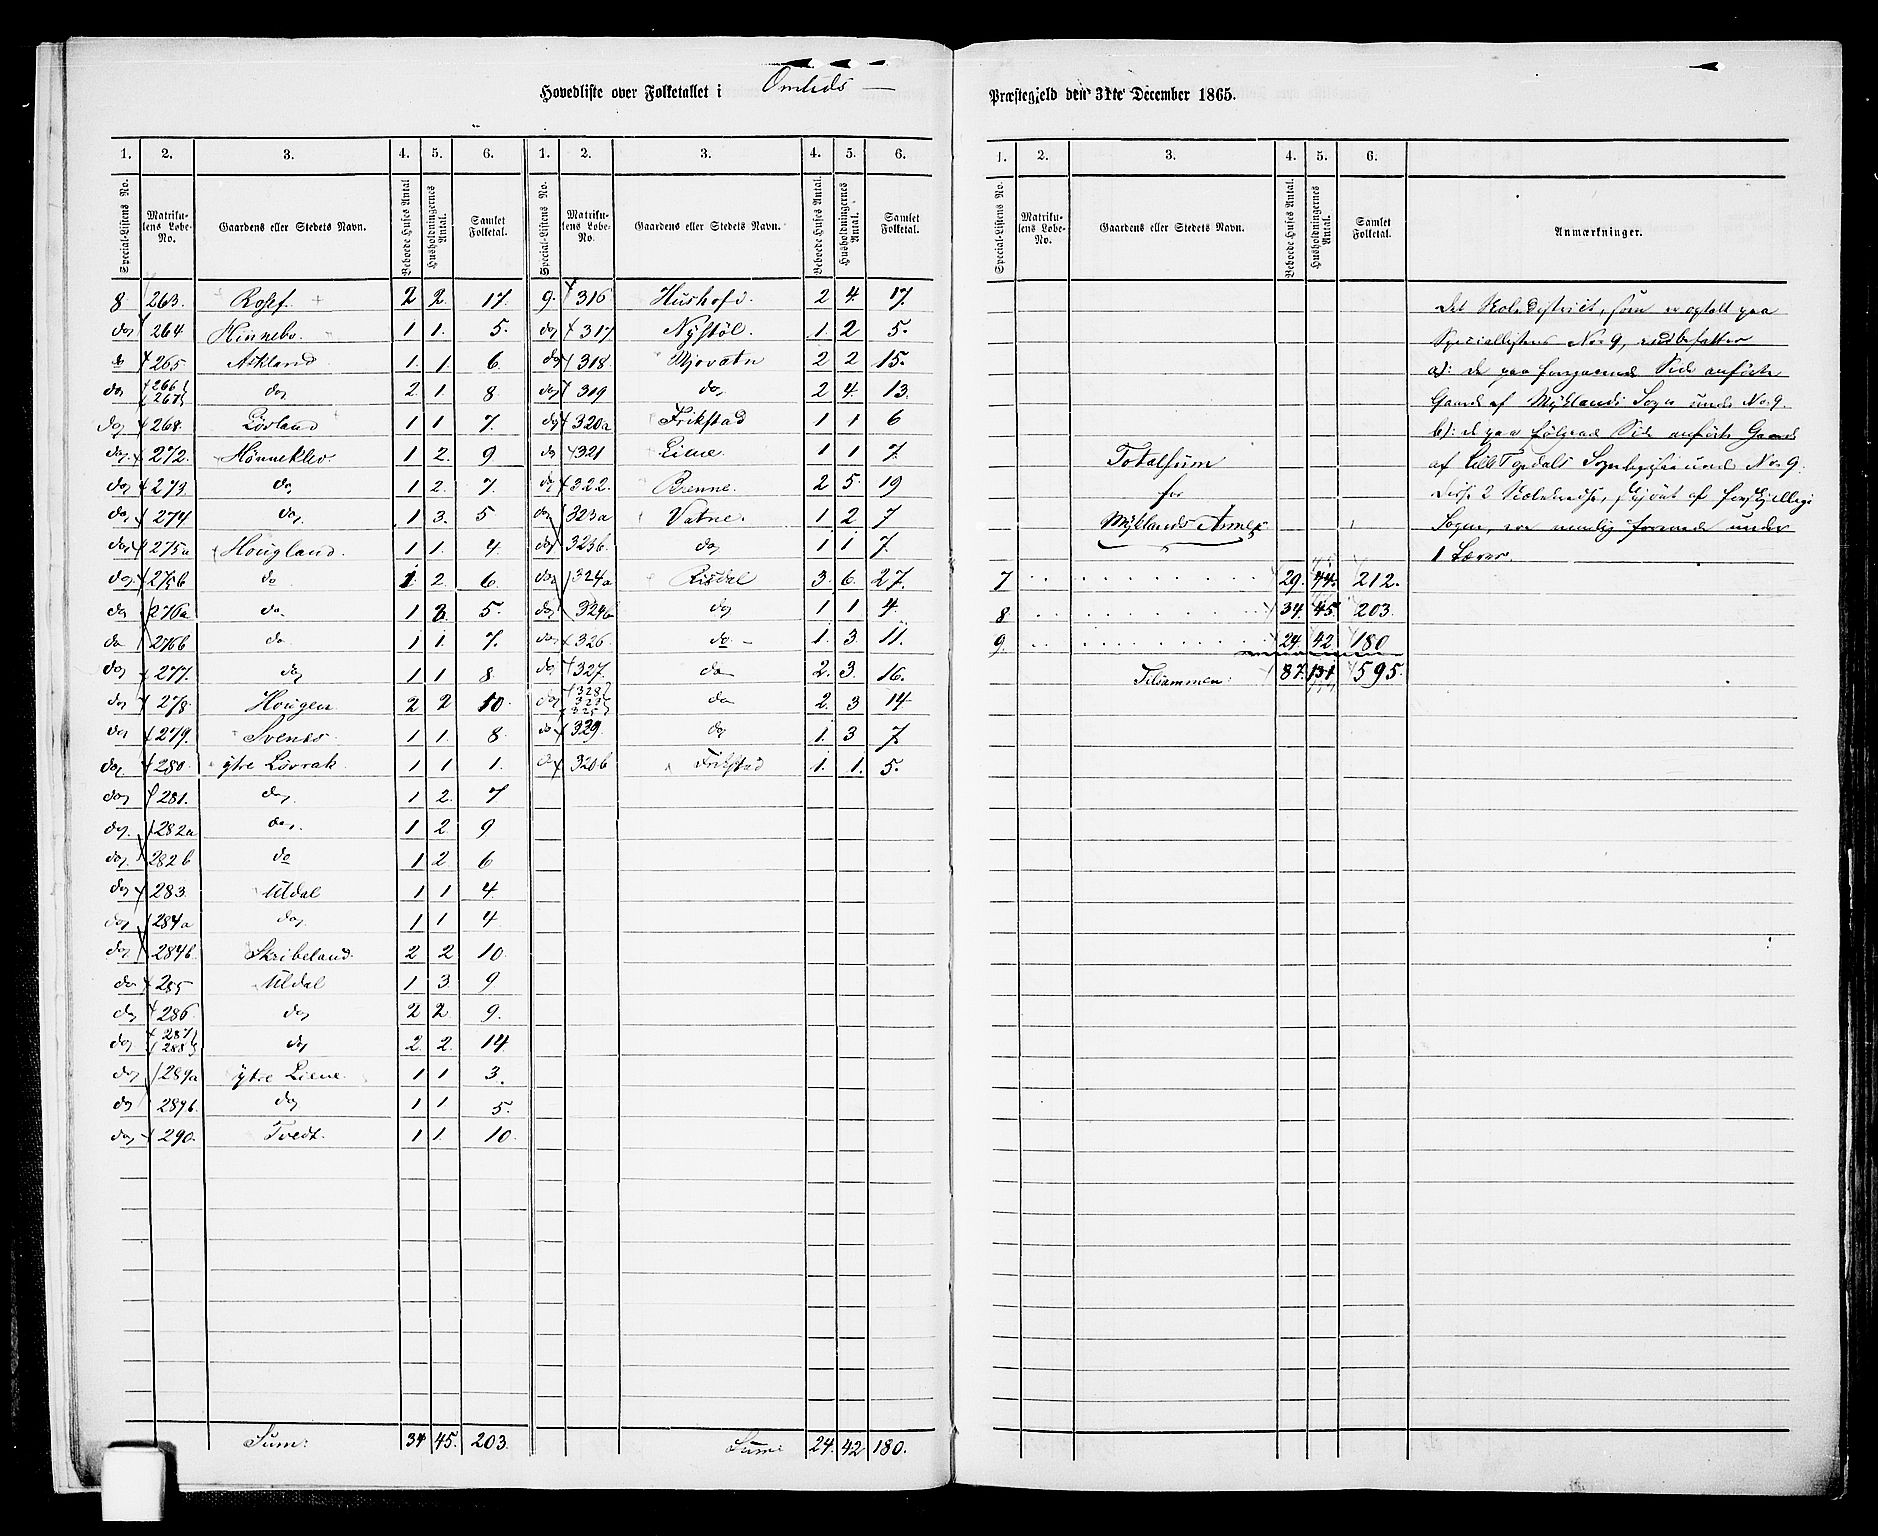 Hovedliste over Folketallet i Omlids —
1. 2. 3. 4. 5. 6. 1. 2. 3. 4. 5. 6.
Special-Listens No. Matrikulens Løbe-No. Gaardens eller Stedets Navn. Beboede Huses Antal. Husholdningernes Antal. Samlet Folketal. Special-Listens No. Matrikulens Løbe-No. Gaardens eller Stedets Navn. Beboede Huses Antal. Husholdningernes Antal. Samlet Folketal.
8 263. 2 2. 17. 9. 316 2 4. 17.
do 264 Hinnebo. 1 1. 5. do 317 Nystöl. 1. 2 5.
do 265 Askland 1. 1. 6. do 318 Mjovatn 2 2 15.
do 266 267 do 2. 1. 8 do 319 do 2 4. 13.
do 268. Lövland 1 1 7. do 320a Frikstad 1 1 6
do 272. Hönneklev 1 2. 9 do 321 Liene. 1 1 7.
do 273. do 1 2. 7. do 322. Brenne. 2 5. 19
do 274 do 1 3. 5 do 323a Vatne. 1 2 7
do 275a Hougland. 1 1. 4. do 323b. do 1 1 7.
do 275b do 1. 2. 6. do 324a Risdal 3. 6. 27.
do 276a do 1 5. do 324b do 1 1. 4.
do 276b do 1 1. 7. do 326. do – 1. 3. 11.
do 277. do 1 1 8 do 327. do 2. 3. 16.
do 278. Hougen 2 2 10. do 328 do 2. 3 14
do 279. Svenes 1 1. 8. do 329. do 1. 3 7.
do 280. ytre Lövrak 1 1 1. do 320b Frikstad 1. 1. 5.
do 281. do 1 2. 7
do 282a do. 1 2 9
do 282b do 1 2. 6
do 283. Uldal 1 1 4.
do 284a do 1 1 4
do 284b. Skribeland. 2 2 10.
do 285 Uldal 1 3. 9
do 286. do 2 2. 9.
do 287 288 do 2. 2. 14
do 289a ytre Liene. 1 1 3.
do 289b. do 1 1 5.
do 290. Tvedt. 1 1. 10.
Sum: 34 45. 203. Sum: 24. 42 180.
Præstegjeld den 31te December 1865.
1. 2. 3. 4. 5. 6.
Special-Listens No. Matrikulens Løbe-No. Gaardens eller Stedets Navn. Beboede Huses Antal. Husholdningernes Antal. Samlet Folketal. Anmærkninger.
Det Skoledistrict, som er optalt paa
Speciallistens No. 9, indbefatter
a): de paa foregaaende Side anförte
Gaarde af Myklands Sogn under No. 9.
b): de paa fölgende Side anförte Gaarde
af Lille Topdals Sogn under No. 9.
Disse 2 Skolekredse, skjönt af forskjellige
Sogne, ere nemlig forenede under
1 Lærer.
Totalsum
for
Myklands Annex
7 29. 44. 212.
8. 34. 45. 203.
9. 24. 42 180
Tilsammen: 87. 131 595.